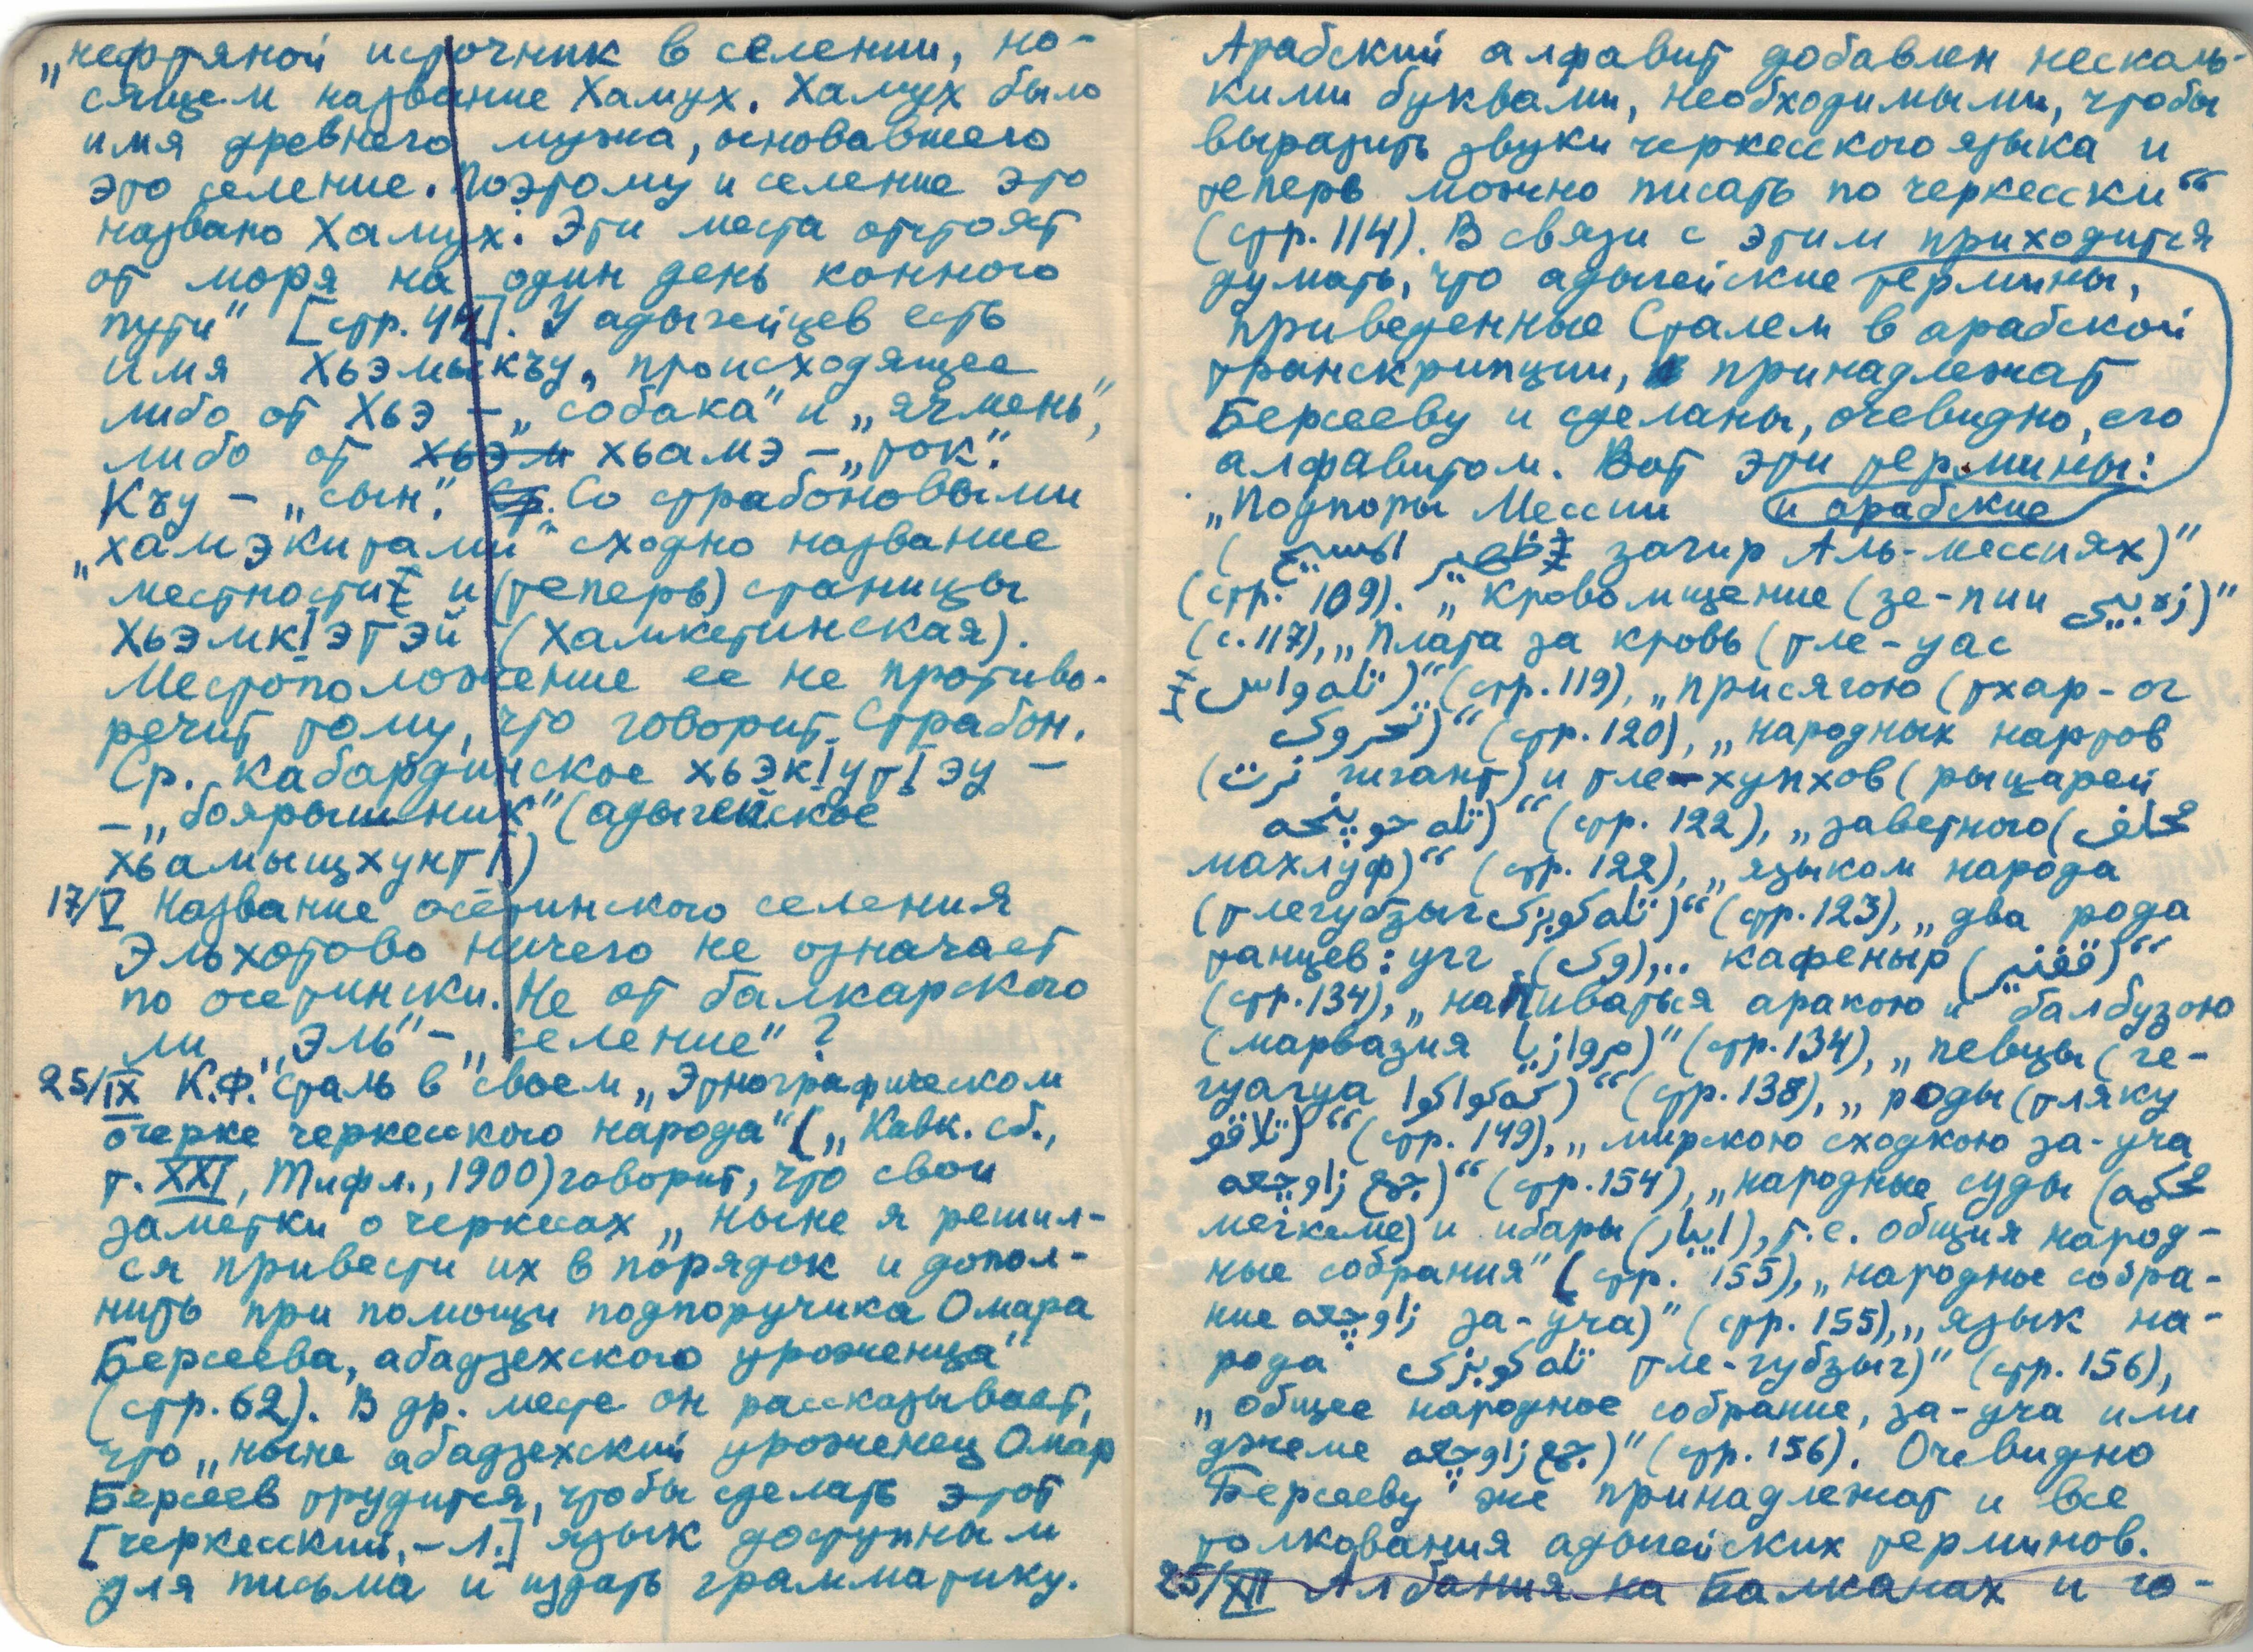 „нефтяной источник в селении, но-
сящем название Хамух. Хамух было
имя древнего мужа, основавшего
это селение. Поэтому и селение это
названо Хамух. Эти места отстоят
от моря на один день конного
пути" [стр. 44]. У адыгейцев есть
имя Хьэмыкъу, происходящее
либо от Хьэ – „собака" и „ячмень",
либо от хьэм хьамэ – „ток".
Къу – „сын". Ср. Со страбоновыми
„хамэкитами" сходно название
местности и (теперь) станицы
ХьэмкIэтэй (Хамкетинская).
Местоположение ее не противо-
речит тому, что говорит Страбон.
Ср. кабардинское хьэкIутIэу –
– „боярышник" (адыгейское
хьамыщхунтI)
17/V Название осетинского селения
Эльхотово ничего не означает
по осетински. Не от балкарского
ли „Эль" – „селение"?
25/IX К.Ф. Сталь в своем „Этнографическом
очерке черкесского народа" („Кавк. сб.,
т. XXI, Тифл., 1900) говорит, что свои
заметки о черкесах „ныне я решил-
ся привести их в порядок и допол-
нить при помощи подпоручика Омара
Берсеева, абадзехского уроженца"
(стр. 62). В др. месте он рассказывает,
что „ныне абадзехский уроженец Омар
Берсеев трудится, чтобы сделать этот
[черкесский, – Л.] язык доступным
для письма и издать грамматику.
Арабский алфавит добавлен несколь-
кими буквами, необходимыми, чтобы
выразить звуки черкесского языка и
теперь можно писать по черкесски"
(стр. 114). В связи с этим приходится
думать, что адыгейские термины,
приведенные Сталем в арабской
транскрипции, принадлежат
Берсееву и сделаны, очевидно, его
алфавитом. Вот эти термины:
„Подпоры Мессии и арабские
( المسيح загир Аль-мессиях)"
(стр. 109). „Кровомщение (зе-пии )"
(с. 117), „Плата за кровь (тле-уас
)" (стр. 119), „присягою (тхар-ог
)" (стр. 120), „народных нартов
(نرت гигант) и тле-хупхов (рыцарей
)" (стр. 122), „заветного (
махлуф)" (стр. 122), „языком народа
(тлегубзыг )" (стр. 123), „два рода
танцев: угг (وک),.. кафеныр ( )"
(стр. 134), „напиваться аракою и балбузою
(марвазия )" (стр. 134), „певцы (ге-
гуагуа )" (стр. 138), „роды (тляку
)" (стр. 149), „мирскою сходкою за-уча
)" (стр. 154), „народные суды (
мегкеме) и ибары ( ), т.е. общия народ-
ные собрания" (стр. 155), „народное собра-
ние за-уча)" (стр. 155), „язык на-
рода тле-губзыг)" (стр. 156),
„общее народное собрание, за-уча или
джеме )" (стр. 156). Очевидно
Берсееву же принадлежат и все
толкования адыгейских терминов.
25/XII Албания на Балканах и го-